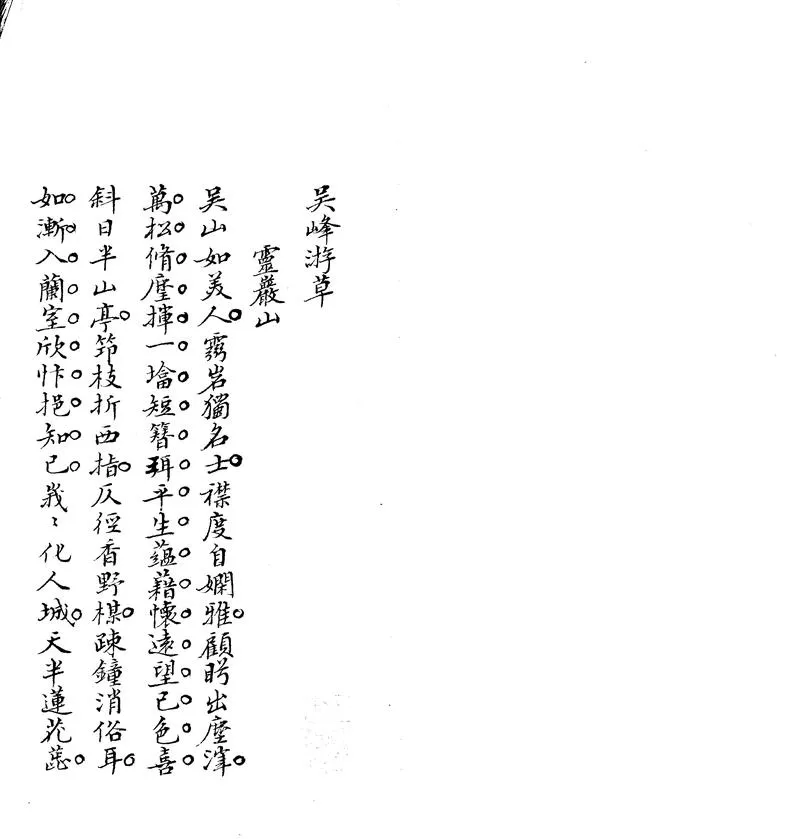 吳峰游草
靈巖山
吳山如美人靈岩獨名士襟度自嫻雅顧眄出塵滓
萬松脩麈揮一墖短簪珥平生蘊藉懷遠望已色喜
斜日半山亭筇枝折西指仄徑香野楳疎鐘消俗耳
如漸入蘭室欣忭挹知已峩〻化人城天半蓮花蕋